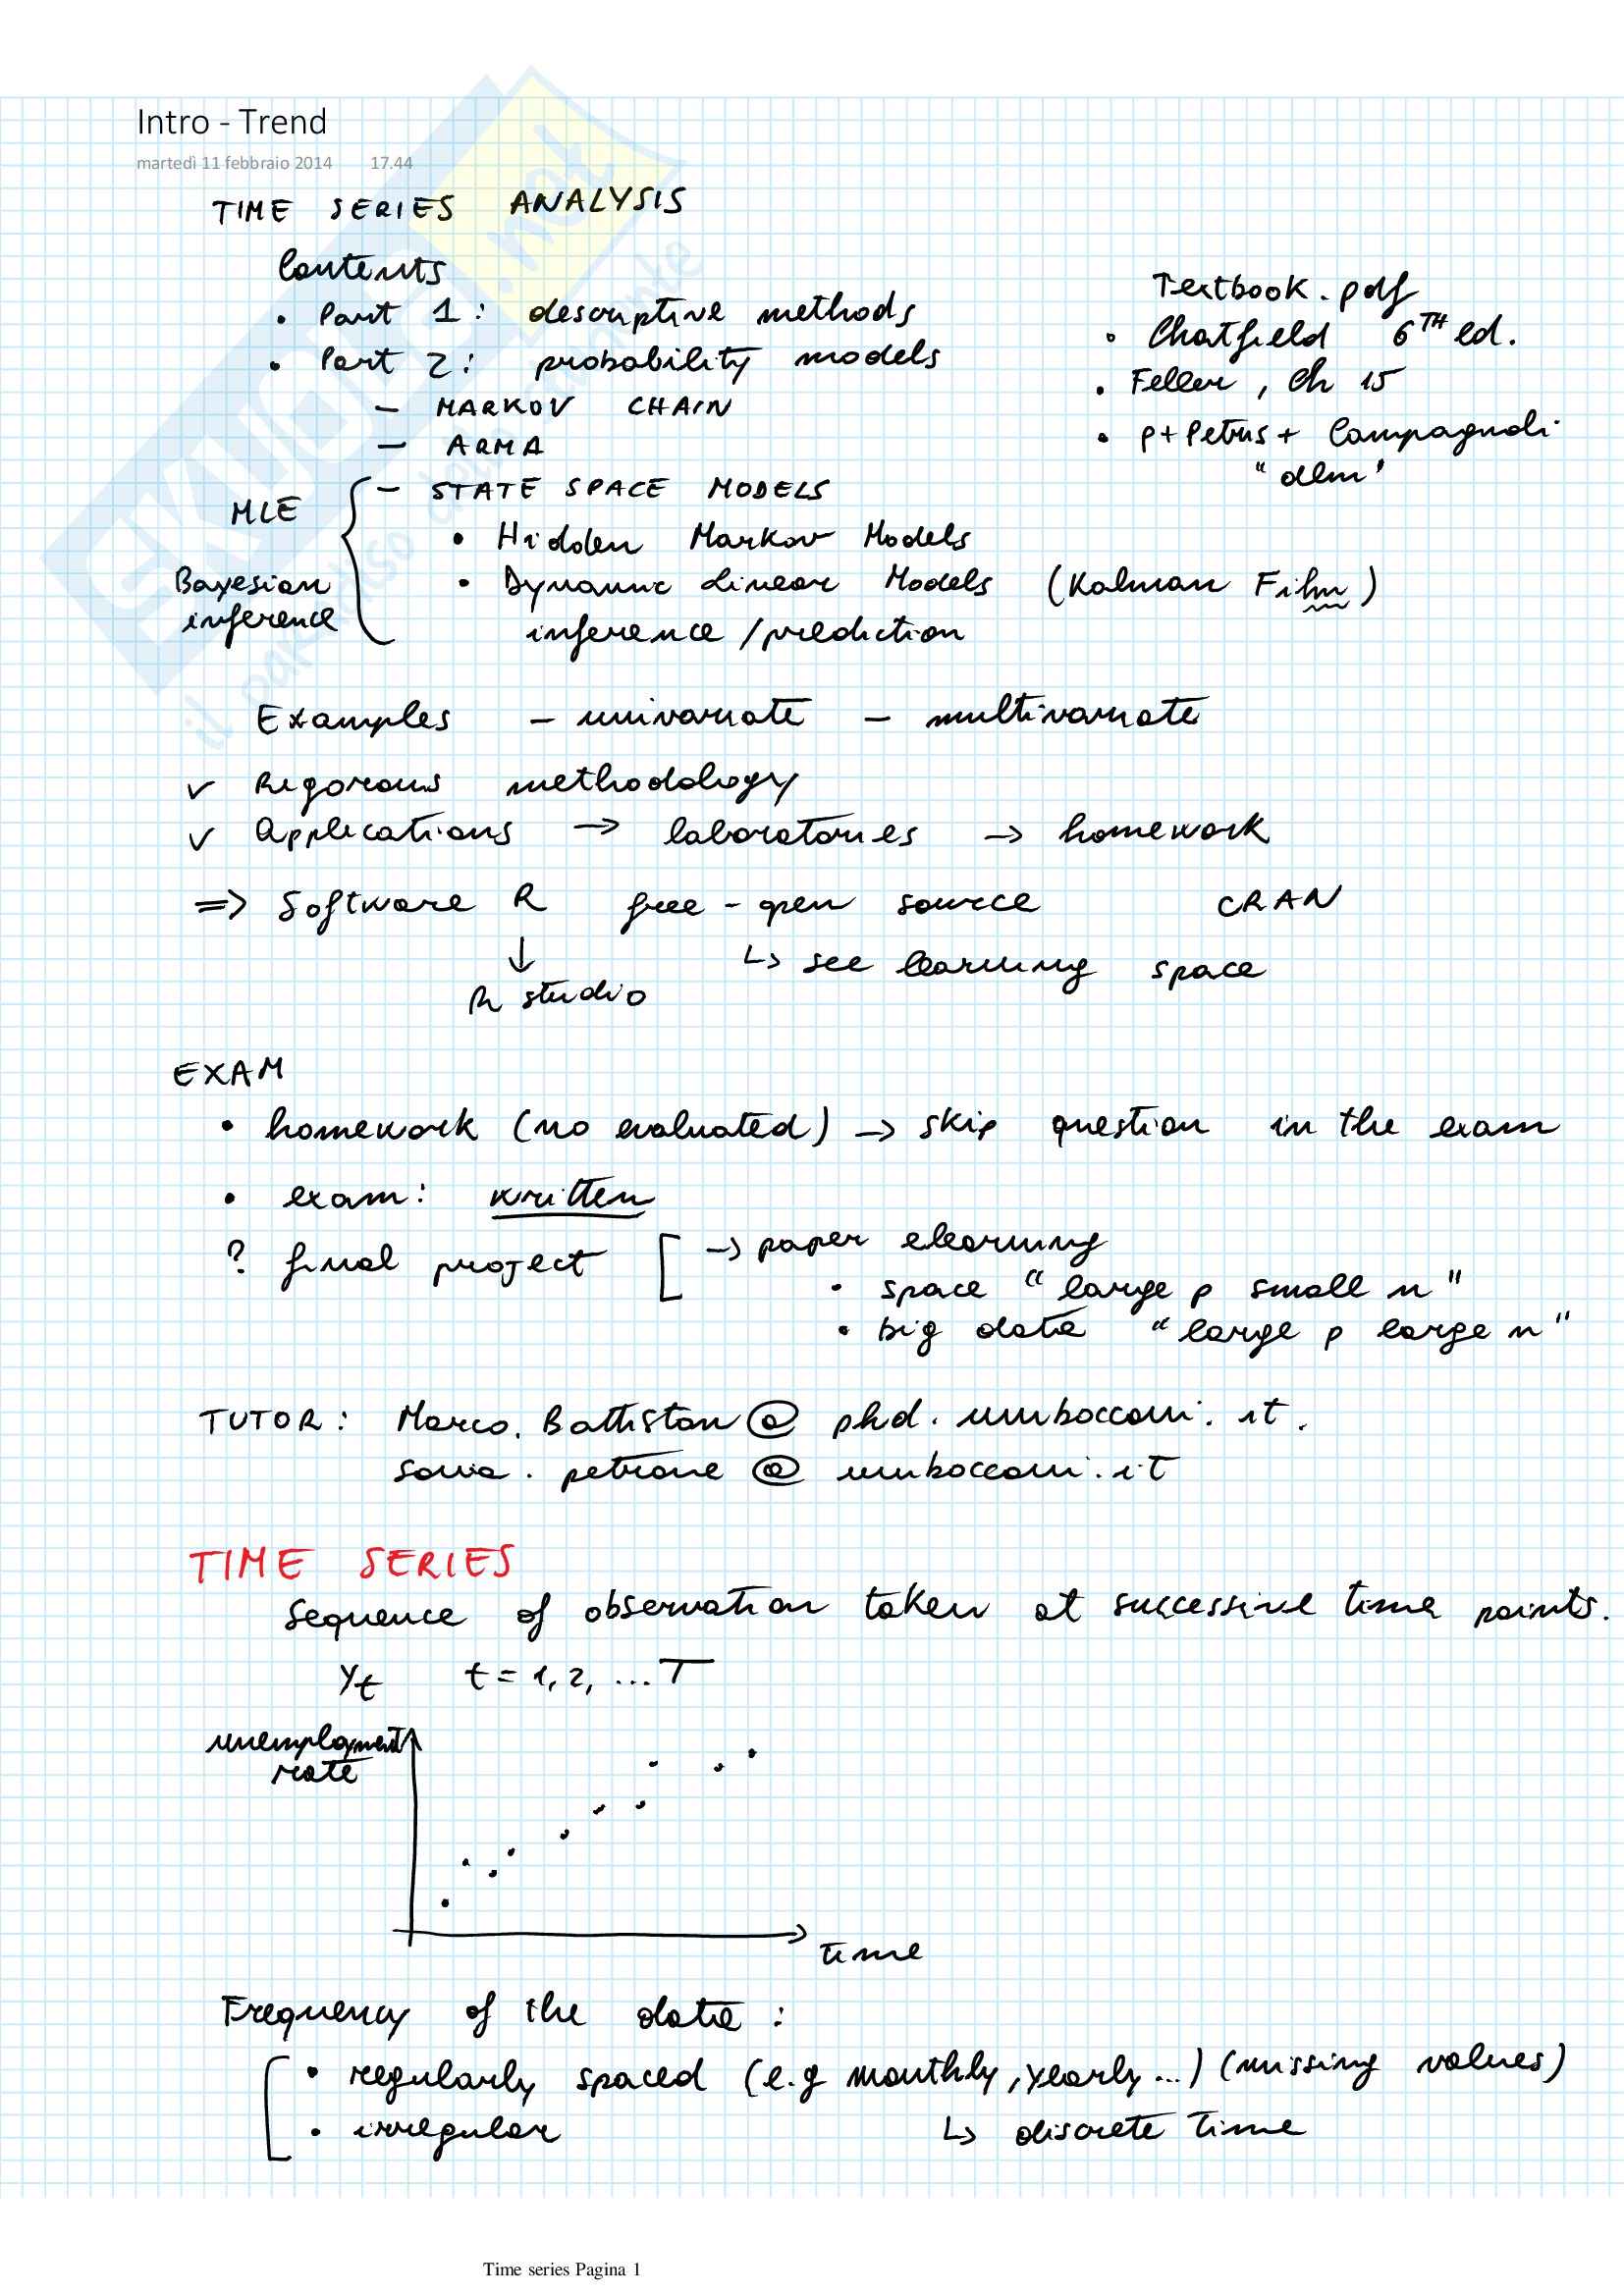 Intro - Trend
martedì 11 febbraio 2014 17.44
TIME SERIES ANALYSIS
Contents
• Part 1: descriptive methods
• Part 2: probability models
– MARKOV CHAIN
– ARMA
– STATE SPACE MODELS
• Hidden Markov Models
• Dynamic Linear Models (Kalman Film)
inference / prediction
MLE
Bayesian
inference
Textbook.pdf
• Chatfield 6TH ed.
• Feller, Ch 15
• P+Petris+ Campagnoli
"dlm"
Examples – univariate – multivariate
✓ Rigorous methodology
✓ Applications → laboratories → homework
=> Software R free - open source CRAN
↓ ↳ see learning space
R studio
EXAM
• homework (no evaluated) → skip question in the exam
• exam: written
? final project [ → paper elearning
• space "large p small n"
• big data "large p large n"
TUTOR: Marco.Battiston@phd.unibocconi.it.
sonia.petrone@unibocconi.it
TIME SERIES
Sequence of observation taken at successive time points.
Yt t = 1, 2, ... T
unemployment
rate
time
Frequency of the data:
• regularly spaced (e.g monthly, yearly...) (missing values)
• irregular ↳ discrete time
Time series Pagina 1